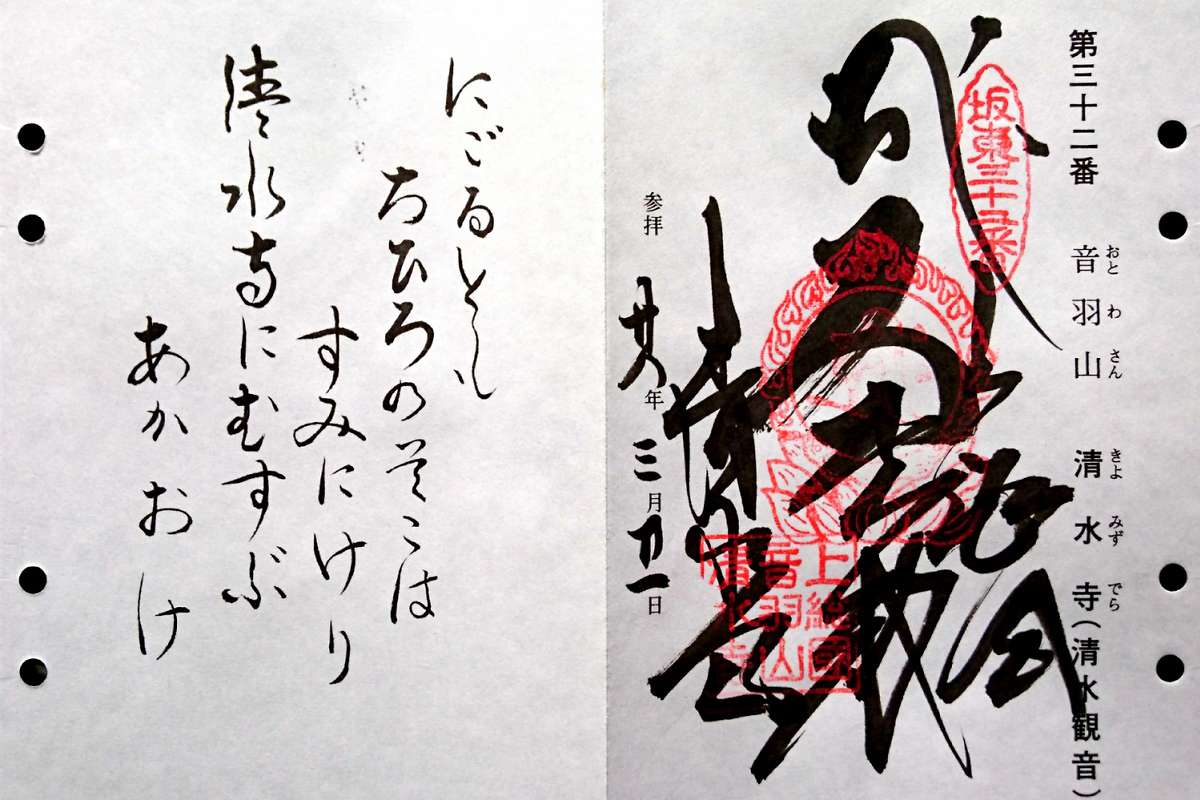 第三十二番 音羽山 清水寺(清水観音)
おとわさん きよみずでら
坂東三十二番
上総國
音羽山
清水寺
参拝 廿八年三月廿一日
にごるとも
ちひろのそこは
すみにけり
清水寺にむすぶ
あかおけ